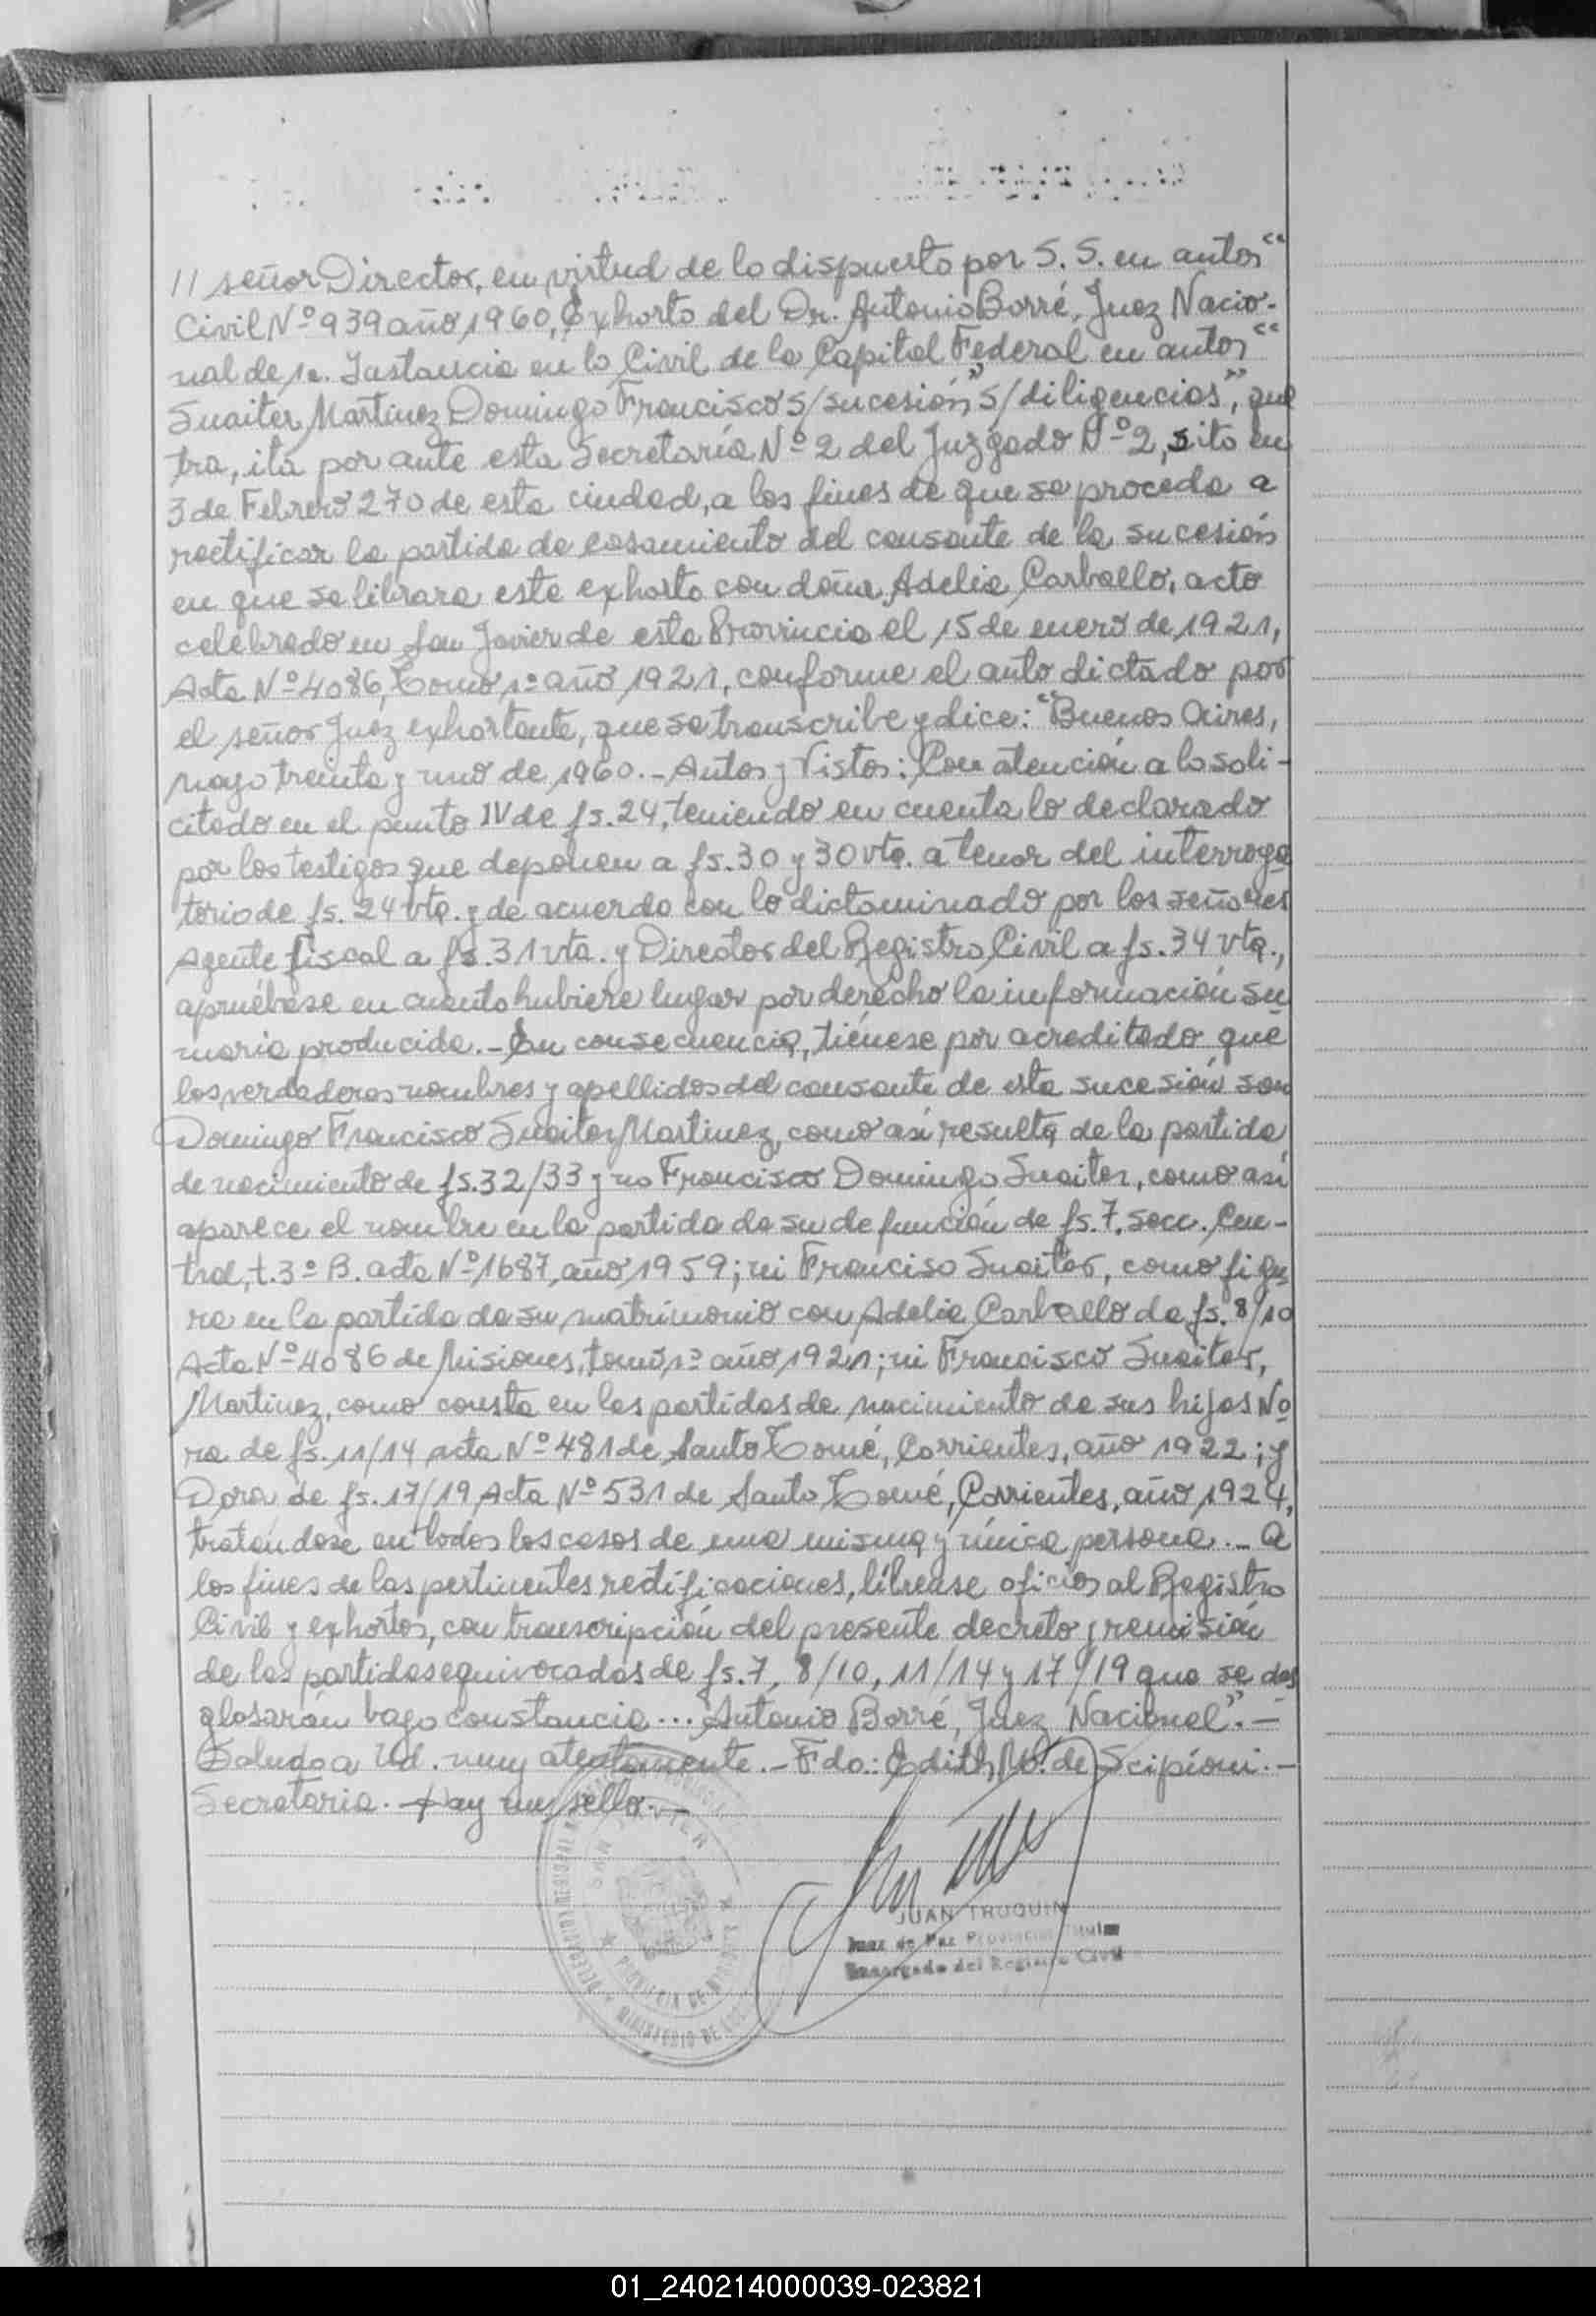 // señor Director, en virtud de lo dispuesto por S. S. en autos "
Civil Nº 939 año 1960, Exhorto del Dr. Antonio Borré, Juez Nacio-
nal de 1a. Instancia en lo Civil de la Capital Federal en autos "
Suaiter Martinez Domingo Francisco s/sucesión" s/diligencias", que
tra, ita por ante esta Secretaría Nº 2 del Juzgado Nº 2, sito en
3 de Febrero 270 de esta ciudad, a los fines de que se proceda a
rectificar la partida de casamiento del causante de la sucesión
en que se librara este exhorto con doña Adelia Carballo, acto
celebrado en San Javier de esta Provincia el 15 de enero de 1921,
Acta Nº 4086, Tomo 1º año 1921, conforme el auto dictado por
el señor Juez exhortante, que se transcribe y dice: "Buenos Aires,
mayo treinta y uno de 1960.- Autos y Vistos: Con atención a lo soli-
citado en el punto IV de fs. 24, teniendo en cuenta lo declarado
por los testigos que deponen a fs. 30 y 30 vta. a tenor del interroga
torio de fs. 24 vta. y de acuerdo con lo dictaminado por los señores
Agente fiscal a fs. 31 vta. y Director del Registro Civil a fs. 34 vta.,
apruébase en cuanto hubiere lugar por derecho la información su
maria producida.- En consecuencia, tiénese por acreditado que
los verdaderos nombres y apellidos del causante de esta sucesión son
Domingo Francisco Suaiter Martinez, como así resulta de la partida
de nacimiento de fs. 32/33 y no Francisco Domingo Suaiter, como así
aparece el nombre en la partida de su defunción de fs. 7. secc. Cen-
tral, t. 3º B. acta Nº 1687, año 1959; ni Franciso Suaiter, como figu
ra en la partida de su matrimonio con Adelia Carballo de fs. 8/10
Acta Nº 4086 de Misiones, tomo 1º año 1921; ni Francisco Suaiter,
Martinez, como consta en las partidas de nacimiento de sus hijas No
ra de fs. 11/14 acta Nº 481 de Santo Tomé, Corrientes, año 1922; y
Dora de fs. 17/19 Acta Nº 531 de Santo Tomé, Corrientes, año 1924,
tratándose en todos los casos de una misma y única persona.- A
los fines de las pertinentes rectificaciones, líbrense oficios al Registro
Civil y exhortos, con transcripción del presente decreto y remisión
de las partidas equivocadas de fs. 7, 8/10, 11/14 y 17/19 que se des
glosarán bajo constancia... Antonio Borré, Juez Nacional".-
Saludo a Ud. muy atentamente.- Fdo.: Edith M. de Scipioni.-
Secretaria.- Hay un sello.-
SAN JAVIER
PROVINCIA DE MISIONES
MINISTERIO DE
JUAN TRUQUIN
Juez de Paz Provincial Titular
Encargado del Registro Civil
01_240214000039-023821